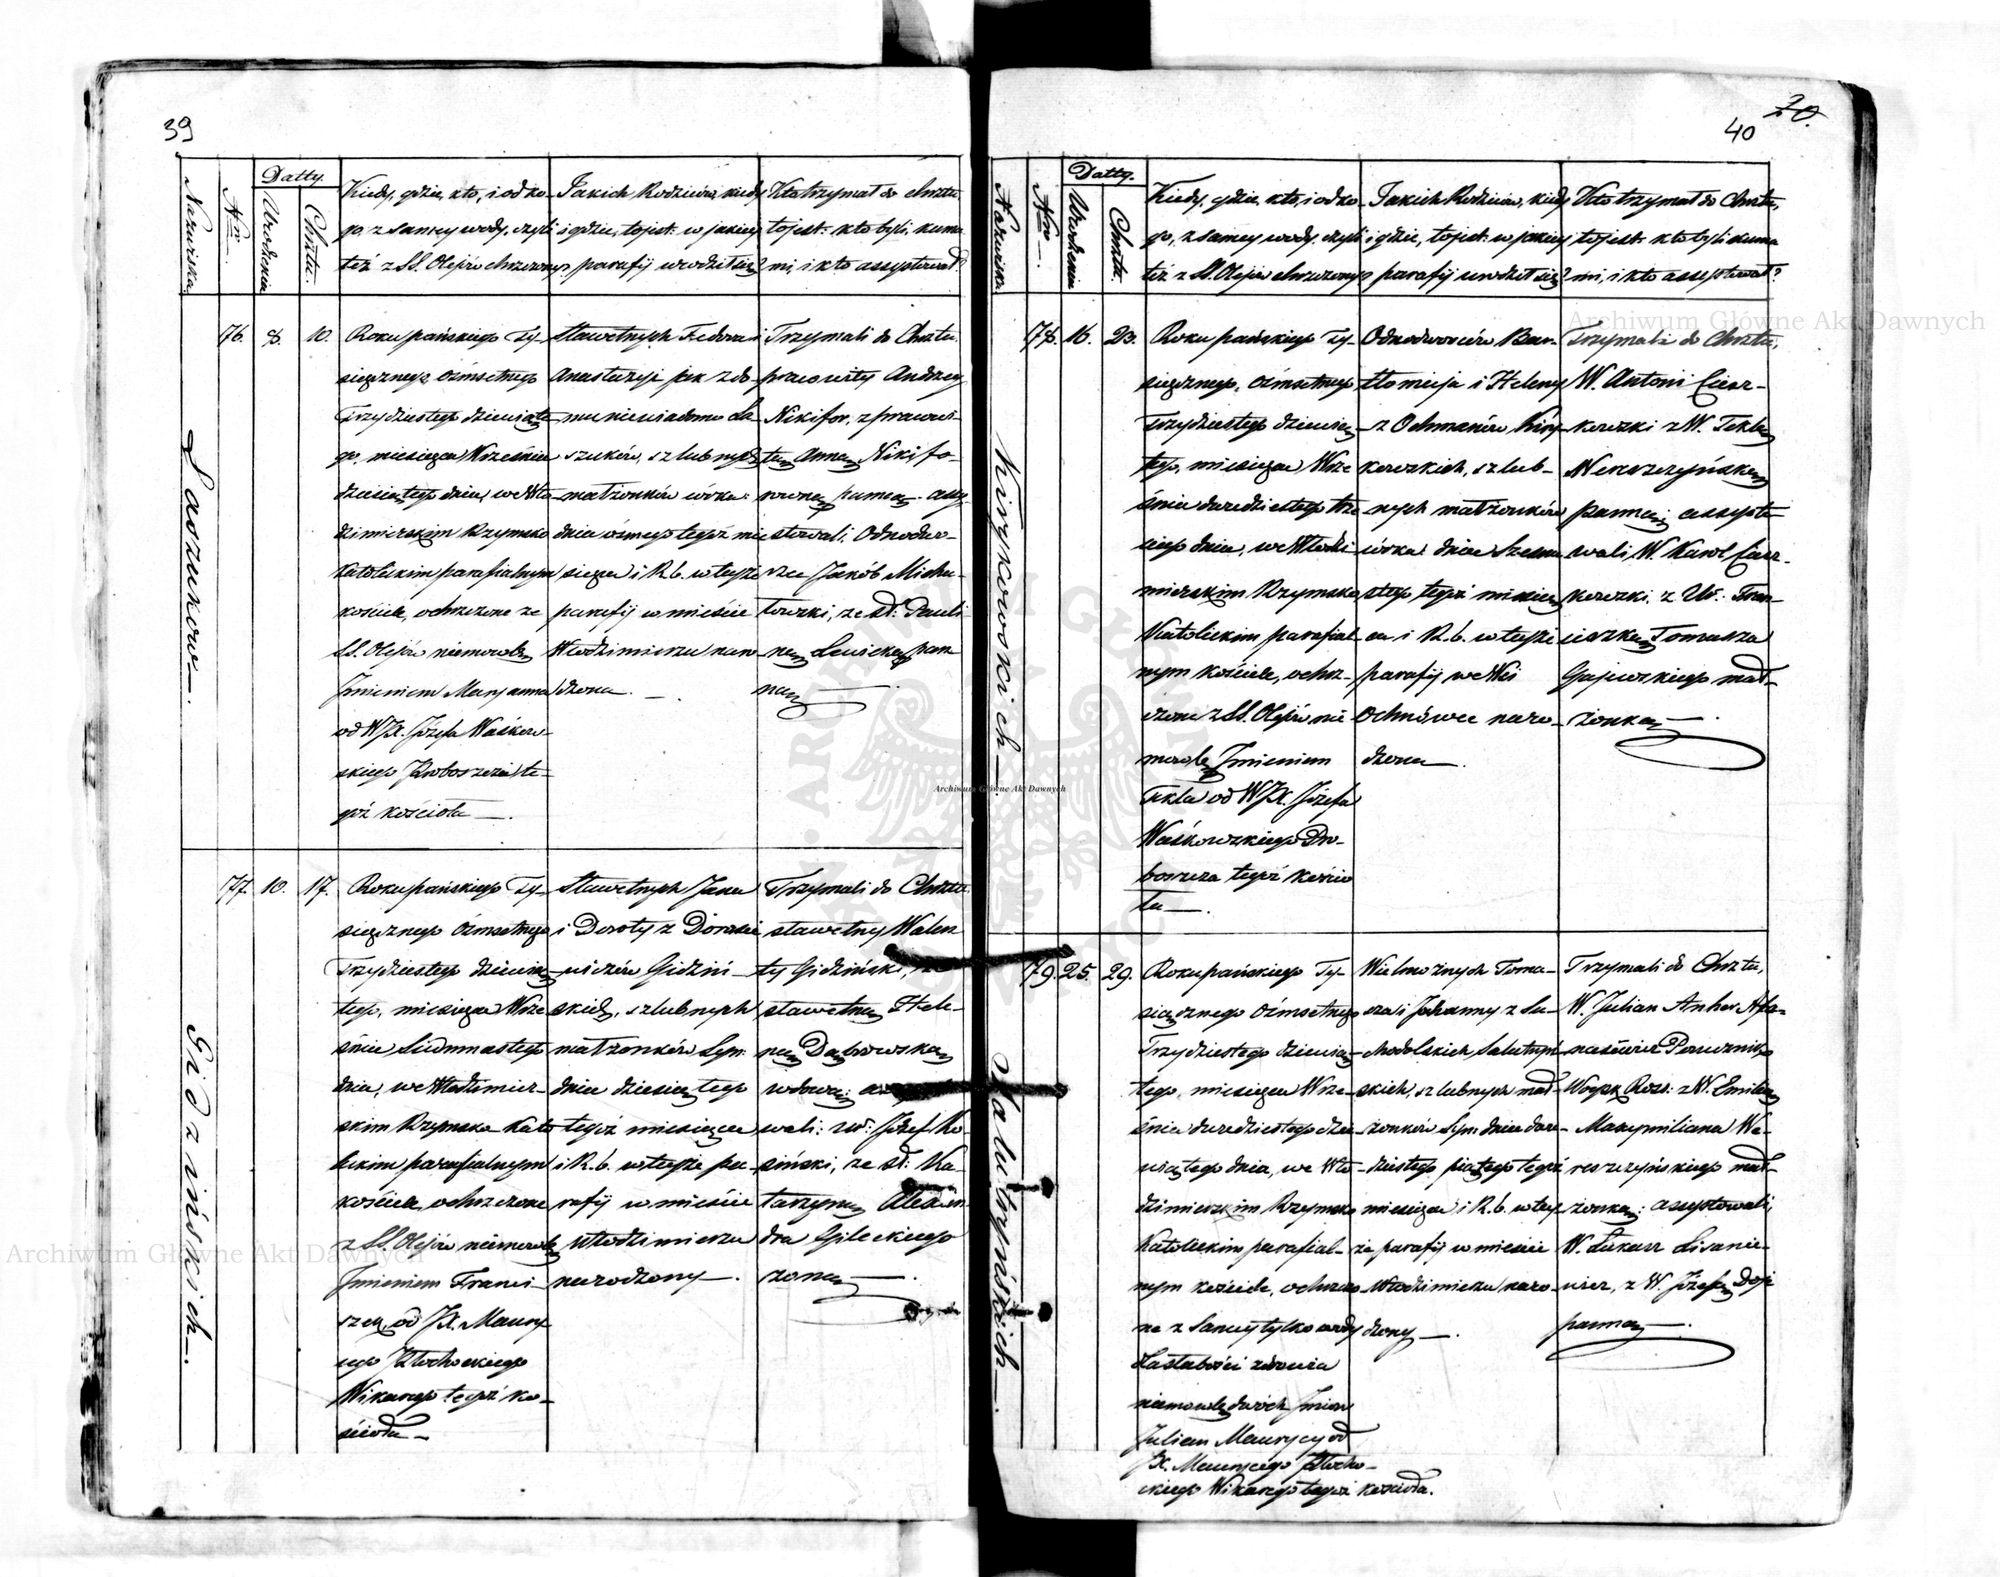 39
Datty.
Nazwiska
Nm
Urodzenia
Chrztu.
Kiedy, gdzie, kto, i od ko-
go, z samey wody, czyli
też z SS. Olejów chrzczony?
Jakich Rodziców, kiedy
i gdzie, tojest: w jakiey
parafij urodził się?
Kto trzymał do chrztu
tojest: kto byli kuma-
mi, i kto assystował?
Laszuków.
76. 8. 10.
Roku pańskiego Ty-
siącznego Ośmsetnego
Trzydziestego dziewiąte-
go, miesiąca Września
dziesiątego dnia, we Wło-
dzimierskim Rzymsko
Katolickim parafialnym
kościele, ochrzczone ze
SS. Olejów niemowlę
Imieniem Maryanna
od WJX. Józefa Waśkow-
skiego Proboszcza te-
goż kościoła.
Sławetnych Fedora i
Anastazyi jak z do-
mu niewiadomo La-
szuków, szlubnych
małżonków córka:
dnia ósmego tegoż mie-
siąca i R. b. w teyże
parafij w mieście
Włodzimierzu naro-
dzona.
Trzymali do Chrztu.
pracowity Andrzey
Nikifor, z pracowi-
tą Anną Nikifo-
rowną panną. assy-
stowali: Odnodwo-
rzec Jakób Micha-
łowski, ze sł. Pauli-
ną Lewicką pan-
ną
Gidzińskich.
77. 10. 17.
Roku pańskiego Ty-
siącznego Ośmsetnego
Trzydziestego dziewią-
tego, miesiąca Wrze-
śnia Siedmnastego
dnia, we Włodzimier-
skim Rzymsko Kato-
lickim parafialnym
kościele, ochrzczone
z SS. Olejów niemowlę
Imieniem Franci-
szek, od JX. Maury-
cego Płochockiego
Wikarego tegoż ko-
ścioła
Sławetnych Jana
i Doroty z
Gidziń-
skich, szlubnych
małżonków Syn:
dnia dziesiątego
tegoż miesiąca
i R. b. w teyże pa-
rafij w mieście
Włodzimierzu
narodzony.
Trzymali do Chrztu.
sławetny Walen-
ty Gidziński, ze
sławetną Hele-
ną Dąbrowską
wdową:
wali: Józef Ko-
siński, ze sł: Ka-
tarzyną Alexan-
dra Gileckiego
żoną
40
20.
Datty.
Nazwiska
Nm
Urodzenia
Chrztu.
Kiedy, gdzie, kto, i od ko-
go, z samey wody, czyli
też z SS. Olejów chrzczony?
Jakich Rodziców, kiedy
i gdzie, tojest: w jakiey
parafij urodził się?
Kto trzymał do Chrztu,
tojest: kto byli kuma-
mi, i kto assystował?
Kirykowskich
78. 16. 23.
Roku pańskiego Ty-
siącznego, Ośmsetnego
Trzydziestego dziewią-
tego, miesiąca Wrze-
śnia dwudziestego trze-
ciego dnia, we Włodzi-
mierskim Rzymsko
Katolickim parafial-
nym kościele, ochrz-
czone z SS. Olejów nie-
mowlę Imieniem
Tekla od WJX. Józefa
Waśkowskiego Pro-
boszcza tegoż kościo-
ła.
Odnodworców Bar-
tłomieja i Heleny
z Ochmanów Kiry-
kowskich, szlub-
nych małżonków
córka: dnia Szesna-
stego, tegoż miesią-
ca i R. b. w teyże
parafij we Wsi
Ochnówce naro-
dzona.
Trzymali do Chrztu,
W. Antoni Ciesz-
kowski z W. Teklą
Wereszczyńską
panną; assysto-
wali W. Karol Ciesz-
kowski z Ur: Fran-
ciszką Tomasza
Gajewskiego mał-
żonką
Sałutryńskich
79. 25. 29.
Roku pańskiego Ty-
siącznego Ośmsetnego
Trzydziestego dziewią-
tego, miesiąca Wrze-
śnia dwudziestego dzie-
wiątego dnia, we Wło-
dzimierskim Rzymsko
Katolickim parafial-
nym kościele, ochrzczo-
ne z Samey tylko wody
dla słabości zdrowia
niemowlę dwóch Imion
Julian Maurycy od
JX. Maurycego Płocho-
ckiego Wikarego tegoż kościoła.
Wielmożnych Toma-
sza i Johanny z Su-
chodolskich Sałutryń-
skich, szlubnych mał-
żonków Syn: dnia dwu-
dziestego piątego tegoż
miesiąca i R. b. w tey-
że parafij w mieście
Włodzimierzu naro-
dzony.
Trzymali do Chrztu,
W. Julian Afa-
nasiewicz Porucznik
Woysk Ross: z W. Emilią
Maxymiliana We-
reszczyńskiego mał-
żonką: assystowali,
W. Łukasz Lisanie-
wicz, z W. Józefą
panną.
Archiwum Główne Akt Dawnych
Archiwum Główne Akt Dawnych
Archiwum Główne Akt Dawnych